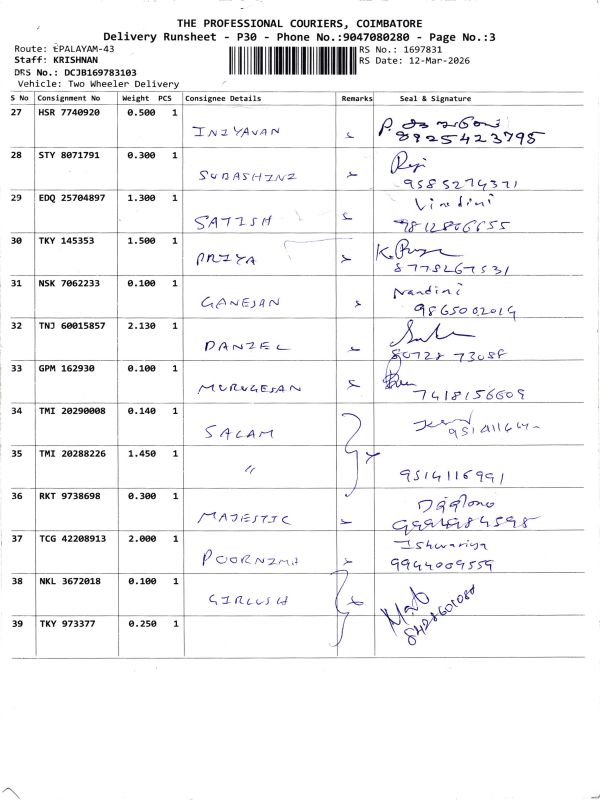 THE PROFESSIONAL COURIERS, COIMBATORE
Delivery Runsheet - P30 - Phone No.:9047080280 - Page No.:3
Route: EPALAYAM-43
RS No.: 1697831
Staff: KRISHNAN
RS Date: 12-Mar-2026
DRS No.: DCJB169783103
Vehicle: Two Wheeler Delivery
S No Consignment No Weight PCS Consignee Details Remarks Seal & Signature
27 HSR 7740920 0.500 1
INIYAVAN
8925423795
28 STY 8071791 0.300 1
SUBASHINI
9585274371
29 EDQ 25704897 1.300 1
SATISH
30 TKY 145353 1.500 1
PRIYA
8778267531
31 NSK 7062233 0.100 1
GANESAN Nandini
9865002019
32 TNJ 60015857 2.130 1
DANIEL
80728 73088
33 GPM 162930 0.100 1
MURUGESAN
7418156609
34 TMI 20290008 0.140 1
SALAM
35 TMI 20288226 1.450 1
〃
9514116991
36 RKT 9738698 0.300 1
MAJESTIC
37 TCG 42208913 2.000 1
Ishwariya
POORNIMA
9944009559
38 NKL 3672018 0.100 1
39 TKY 973377 0.250 1